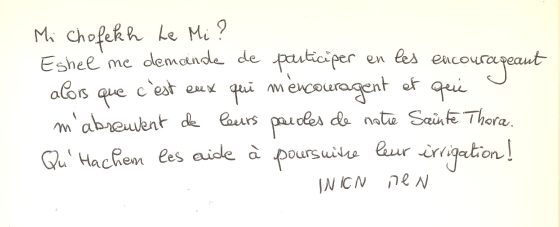 Mi Chofekh Le Mi ?
Eshel me demande de participer en les encourageant
alors que c'est eux qui m'encouragent et qui
m'abreuvent de leurs paroles de notre Sainte Thora.
Qu'Hachem les aide à poursuivre leur irrigation !
משה מאמן